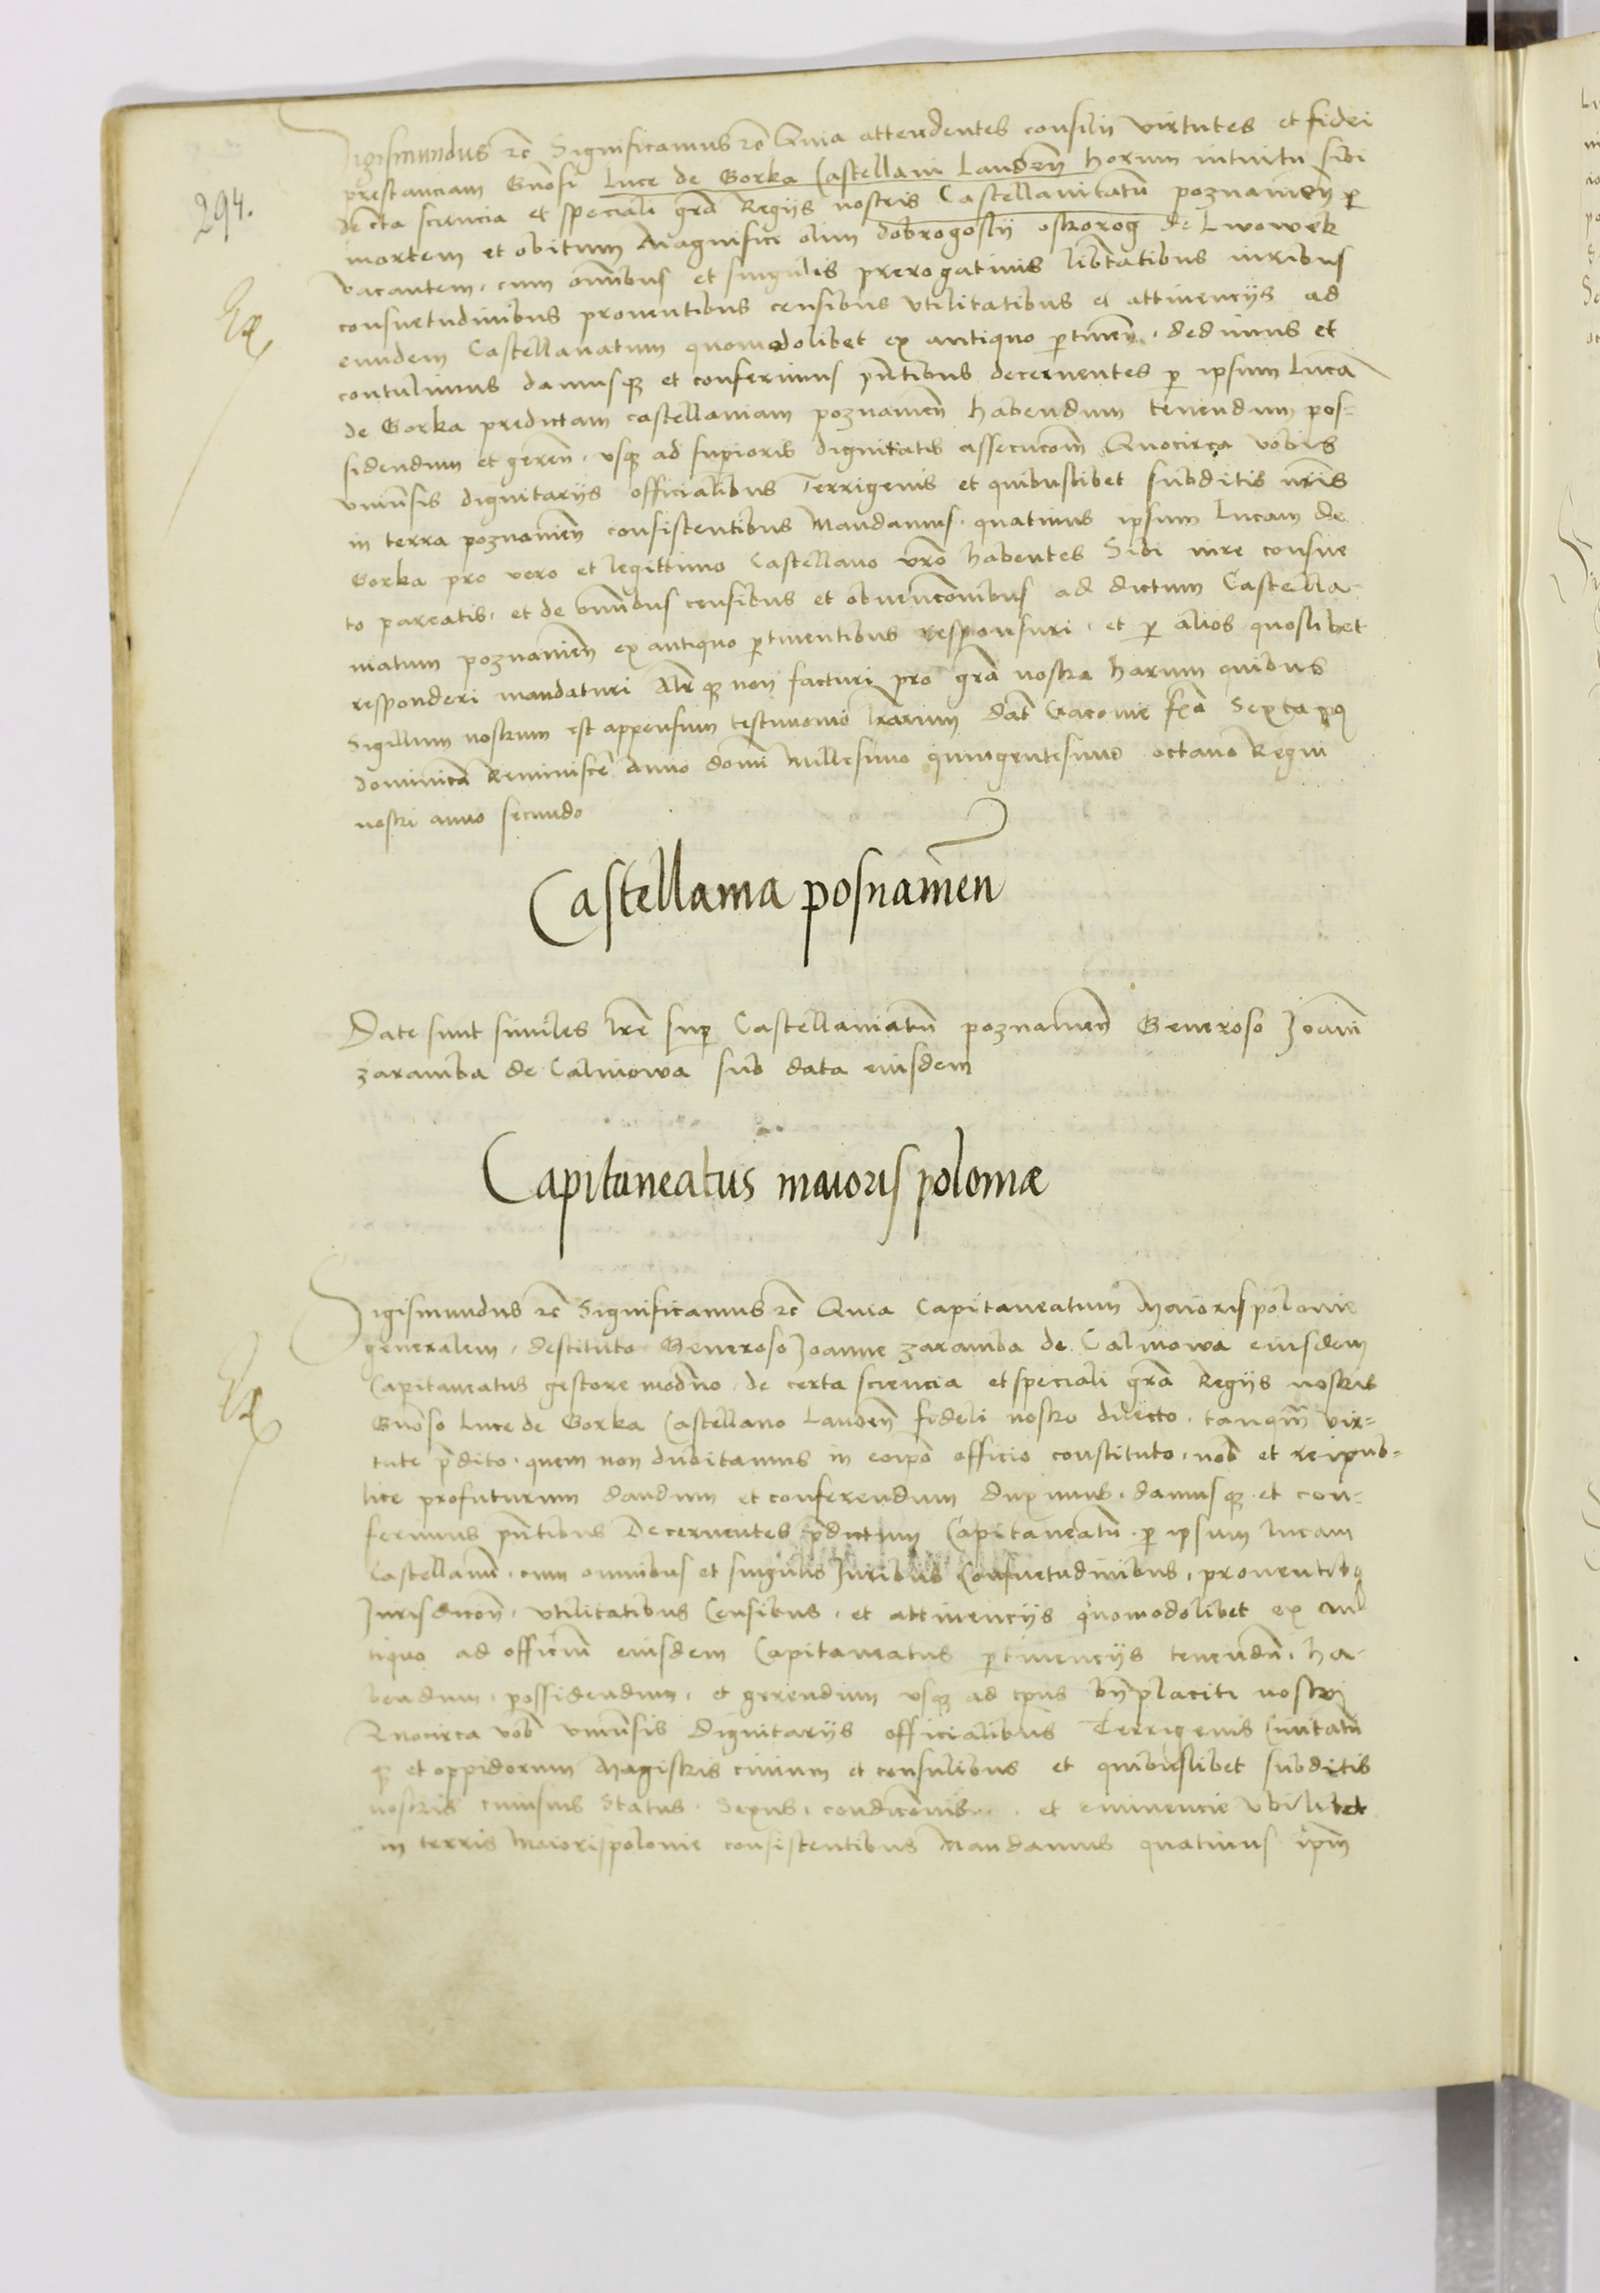 294.
Sigismundus rc Significamus rc Quia attendentes consilii virtutes et fidei
prestanciam Gnosi Luce de Gorka Castellani Landen horum intuitu sibi
de cta sciencia et speciali gra Regijs nostris Castellanitatu poznanien p
mortem et obitum Magnifici olim dobrogostij ostrorog de Lwowek
vacantem, cum omnibus et singulis prerogatinis libtatibus iuribus
consuetudinibus proventibus censibus vtilitatibus et attinencijs ad
eundem Castellanatum quomodolibet ex antiquo ptinen. dedimus et
contulimus damusq et conferimus pntibus decernentes p ipsum Luca
de Gorka predictam castellaniam poznanien habendum tenendum pos=
sidendum et geren. vsq ad supioris dignitatis assecucom Quocirca vobis
vniusis dignitarijs officialibus Terrigenis et quibuslibet subditis nris
in terra poznanien consistentibus Mandamus. quatinus ipsum Lucam de
Gorka pro vero et legittimo Castellano vro habentes Sibi iure consue
to pareatis. et de omnibus censibus et obuencombus ad dictum Castella-
niatum poznanien ex antiquo ptinentibus responsuri. et p alios quoslibet
responderi mandaturi Alr q non facturi pro gra nostra harum quibus
Sigillum nostrum est appensum testimonio lrarum dat Cracovie fca Sexta
dominica Reminisce Anno domi Millesimo quingentesimo octavo Regni
nostri anno secundo
Castellania posnanien
Date sunt similes lre sup Castellaniatu poznanien Generoso Joani
zaramba de Calinowa sub data eiusdem
Capitaneatus maioris poloniæ
Sigismundus rc Significamus rc Quia Capitaneatum Maiorispolonie
generalem, destituto Generoso Joanne zaramba de Calinowa eiusdem
Capitaneatus gestore modno. de certa sciencia et speciali gra Regijs nostris
Gnoso Luce de Gorka Castellano Landen fideli nostro dilecto. tanqm vir=
tute pdito. quem non dubitamus in eoipo officio constituto. nob et reipub=
lice profuturum dandum et conferendum duximus. damusq et con=
ferimus pntibus Decernentes pdictum Capitaneatu p ipsum Lucam
Castellanu. cum omnibus et singulis Juribus Consuetudinibus, proventibq
Jurisdicon. vtilitatibus Censibus. et attinencijs quomodolibet ex an
tiquo ad officiu eiusdem Capitaneatus ptinencijs tenendu. ha-
bendum. possidendum. et gerendum vsq ad tpus bnplaciti nostri
Quocirca vob vniusis Dignitarijs officialibus Terrigenis Civitatu
q et oppidorum Magistris civium et consulibus et quibuslibet subditis
nostris cuiusuis Status. Sexus. condicomis. et eminencie vbilibet
in terris Maiorispolonie consistentibus Mandamus quatinus ipm